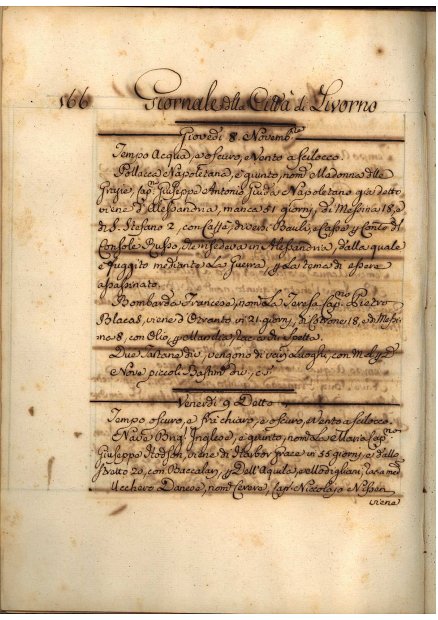 166 Giornale della Città di Livorno
Giovedi 8. Novemb.re
Tempo Acqua, e oscuro, e Vento a scilocco.
Pollacca Napoletana, è giunto, nom.a Madonna delle
Grazie, Cap.o Giuseppe Antonio Guida Napoletano q.a detto
viene d'Alessandria, manca 51 giorni, di Messina 18, e
di S. Stefano 2, con Caffè, diversi Bauli, e Casse p Conto del
Console Russo, che risedeva in Alessandria, dalla quale
è fuggito mediante la Guerra, p la tema di essere
assassinato.
Bombarda Francese, nom.a La Teresa, Cap.no Pietro
Blacas, viene d'Otranto in 21 giorni, di Cotrone 18, e di Messi-
na 8, con Olio, p
Due Tartane div., vengono di vari Luoghi, con
Nove piccoli Bastim. div., c.s.
Venerdi 9 Detto
Tempo oscuro, e frà chiaro, e oscuro, e Vento a scilocco.
Nave Brig. Inglese, è giunto, nom.a La Maria, Cap.no
Giuseppe Hodson, viene di Harbor Grace in 55 giorni, e dallo
Stretto 20, con Baccalari, p Dell'Aquila, e Modigliani,
Ucchero Danese, nom.o Cevere, Cap.o Niccolajo Nissen
viene